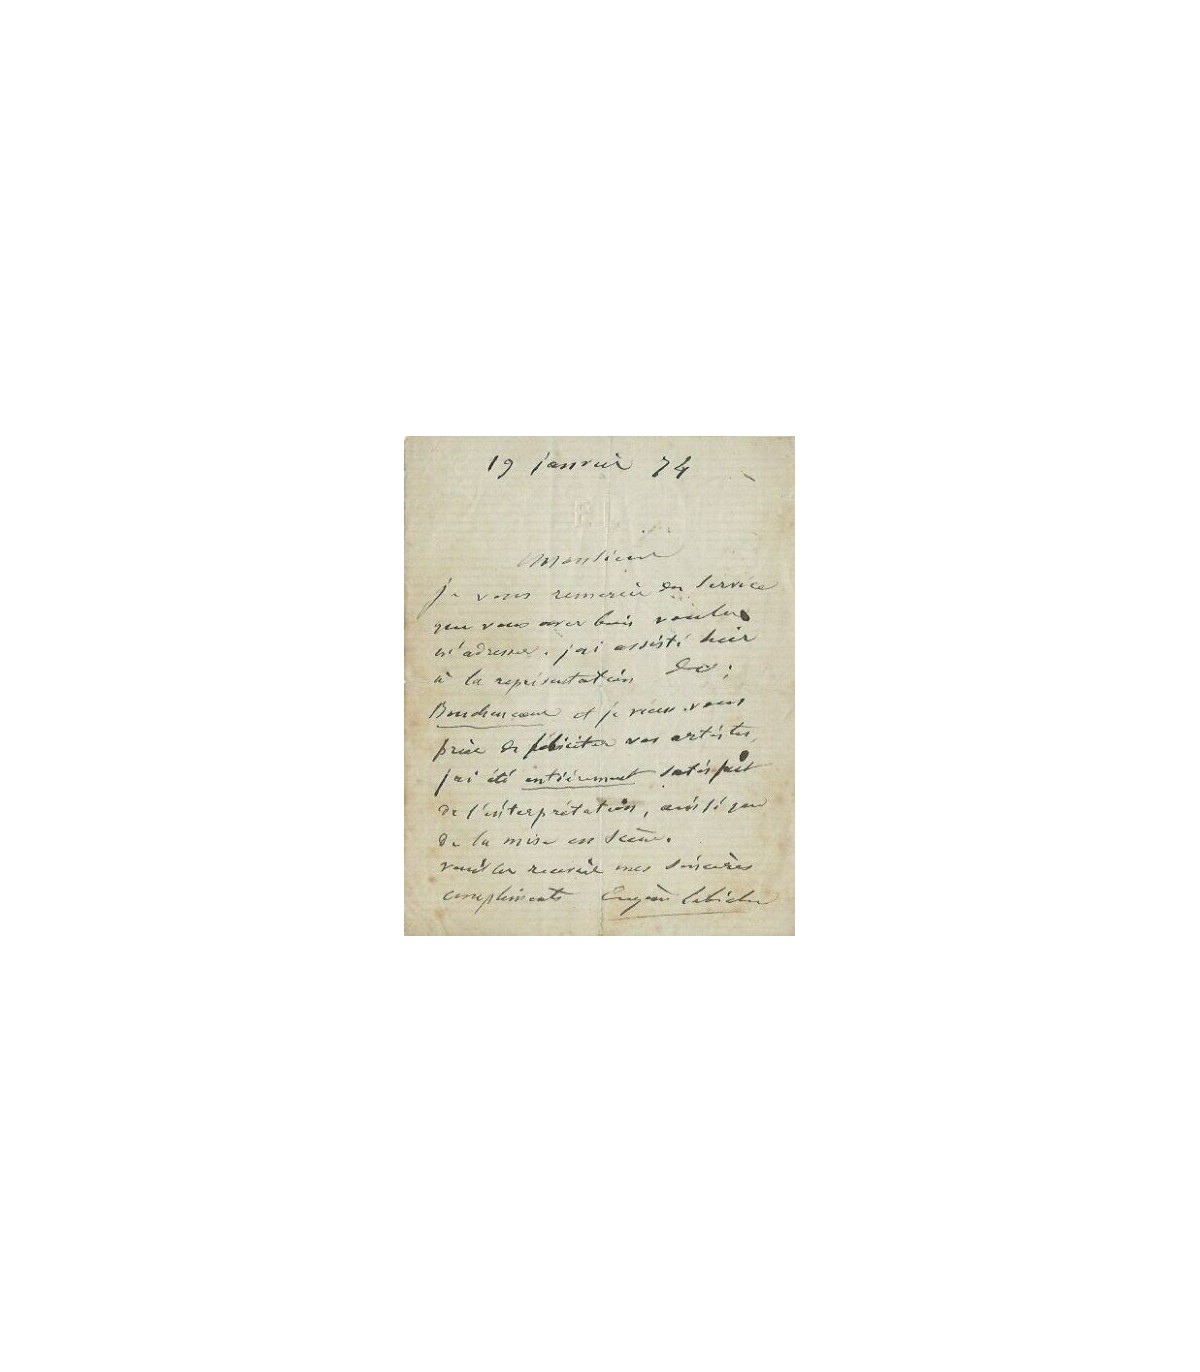 19 janvier 74
Monsieur
je vous remercie du service
que vous avez bien voulu
m'adresser. j'ai assisté hier
à la représentation de
Boudencoeur et je viens vous
prier de féliciter vos artistes,
j'ai été entièrement satisfait
de l'interprétation, ainsi que
de la mise en scène.
veuillez recevoir mes sincères
compliments Eugène Labiche